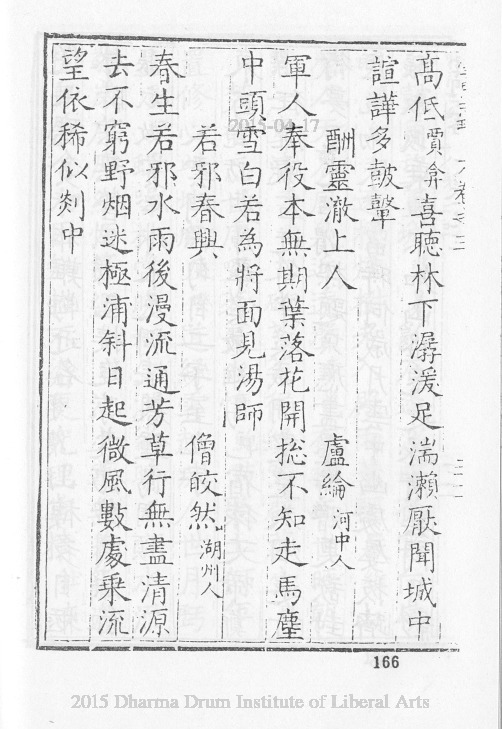 高低賈弇喜聽林下潺湲足湍瀨厭聞城中
諠譁多皷鼙
酬靈澈上人 盧綸 河中人
軍人奉役本無期葉落花開揔不知走馬塵
中頭雪白若為將面見湯師
若邪春興 僧皎然 湖州人
春生若邪水雨後漫流通芳草行無盡清源
去不窮野烟迷極浦斜日起微風數處乗流
望依稀似剡中
2015-04-17
166
2015 Dharma Drum Institute of Liberal Arts